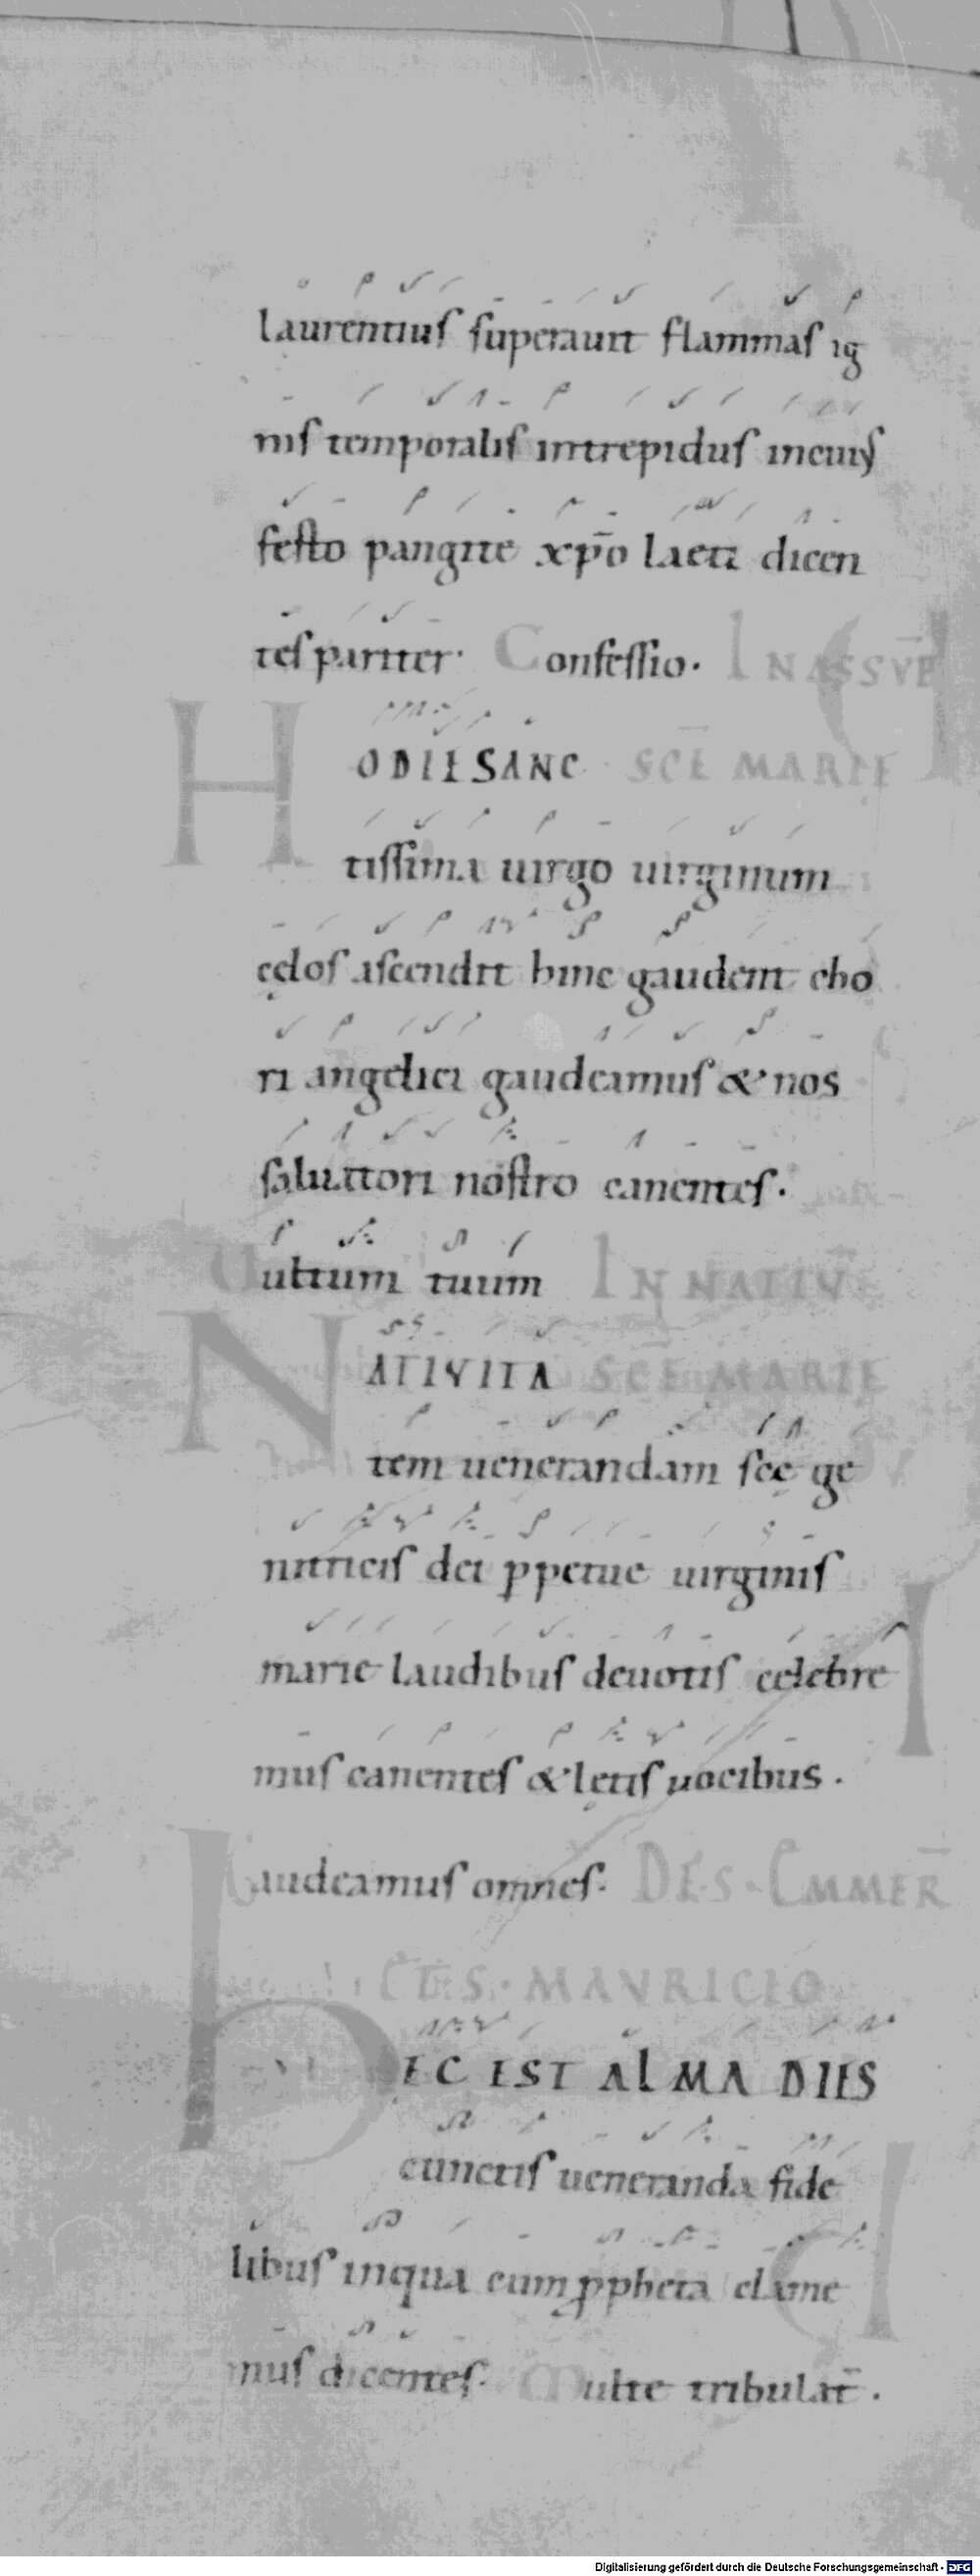 laurentiuſ ſuperauit flammaſ ig
niſ temporaliſ intrepiduſ in cuiꝰ
feſto pangite xp̄o laeti dicen
teſ pariter· Confeſſio· IN ASSVP̄
HODIE SANC SCĒ MARIE
tiſſima uirgo uirginum
cęloſ aſcendit hinc gaudent cho
ri angelici gaudeamuſ & nos
ſaluatori noſtro canenteſ·
Uultum tuum IN NATIV̄
NATIVITA SCĒ MARIE
tem uenerandam ſcę ge
nitriciſ dei ꝑpetue uirginiſ
marie laudibuſ deuotiſ celebre
muſ canenteſ & lętiſ uocibus·
Gaudeamuſ omneſ· DE S· EMMER̄
ET DE S· MAVRICIO
HEC EST ALMA DIES
cunctiſ ueneranda fide
libuſ in qua cum ꝓpheta clame
muſ dicenteſ· Multe tribulat̄·
Digitalisierung gefördert durch die Deutsche Forschungsgemeinschaft - DFG